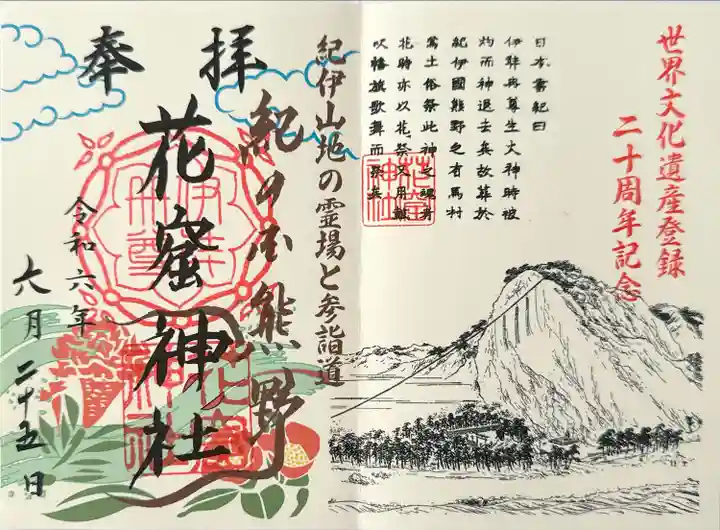 世界文化遺産登録
二十周年記念
日本書紀曰
伊弉冉尊生火神時被
灼而神退去矣故葬於
紀伊國熊野之有馬村
焉土俗祭此神之魂者
花時亦以花祭又用鼓
吹幡旗歌舞而祭矣
花窟
神社
紀伊山地の霊場と参詣道
紀の国熊野
奉拝
花窟神社
令和六年
六月二十五日